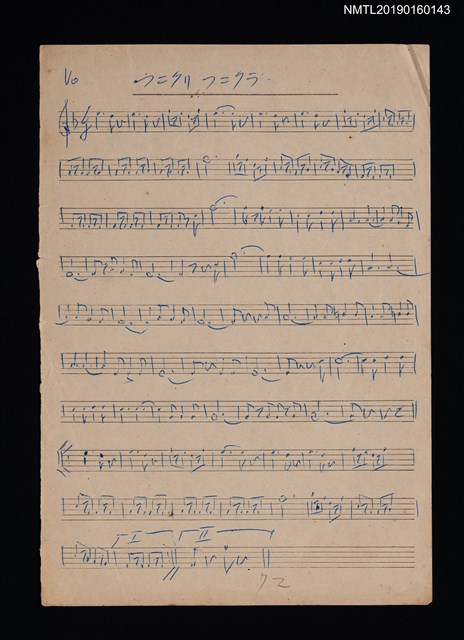 NMTL20190160143
Vo
フニクリ フニクラ
I II
72